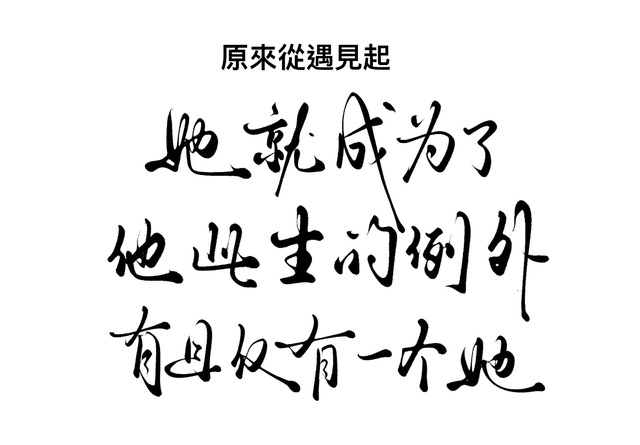 原來從遇見起
她就成为了
他此生的例外
有且仅有一个她